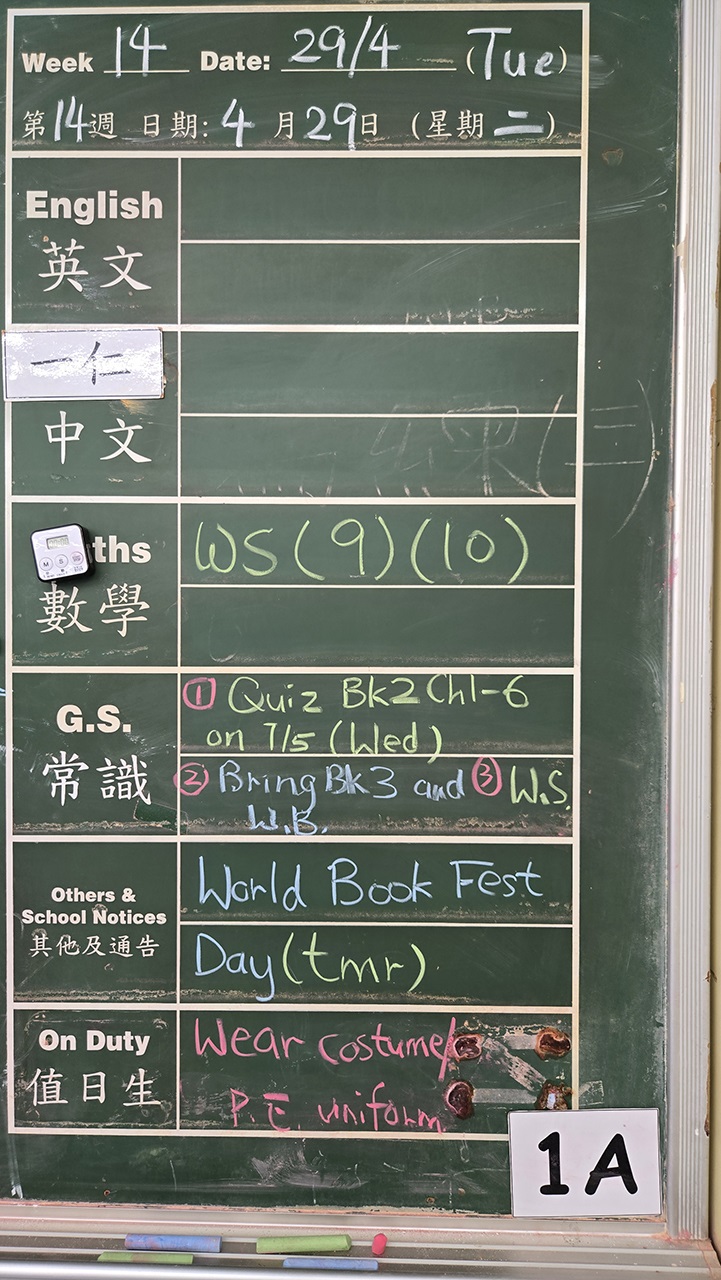 Week 14 Date: 29/4 (Tue)
第14週 日期: 4 月29日 (星期 二)
English
英文
一仁
中文
ths
WS (9)(10)
數學
G.S.
常識
① Quiz Bk2 Ch1-6
on 7/5 (Wed)
② Bring Bk3 and ③ W.S.
W.B.
Others &
School Notices
其他及通告
World Book Fest
Day (tmr)
On Duty
值日生
Wear costume/
P.E. uniform
1A